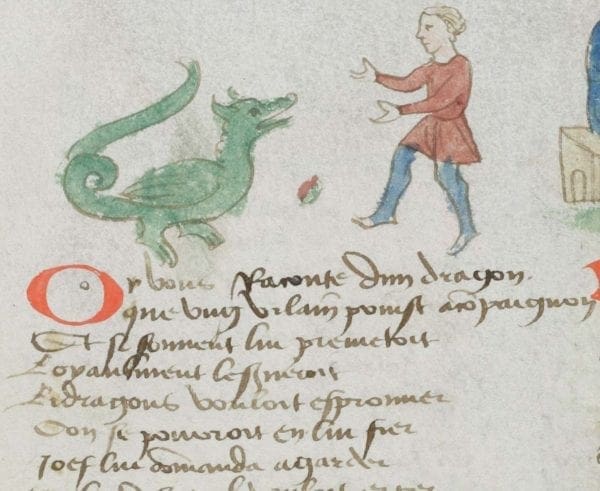 Or vous Raconte dun dragon
que vng vilain prinst acopaignon
Et si souuent lui prometoit
Loyaulment le seruiroit
Li dragons vouloit esprouuer
Son se pouroit en lui fier
j oef lui comanda agarder